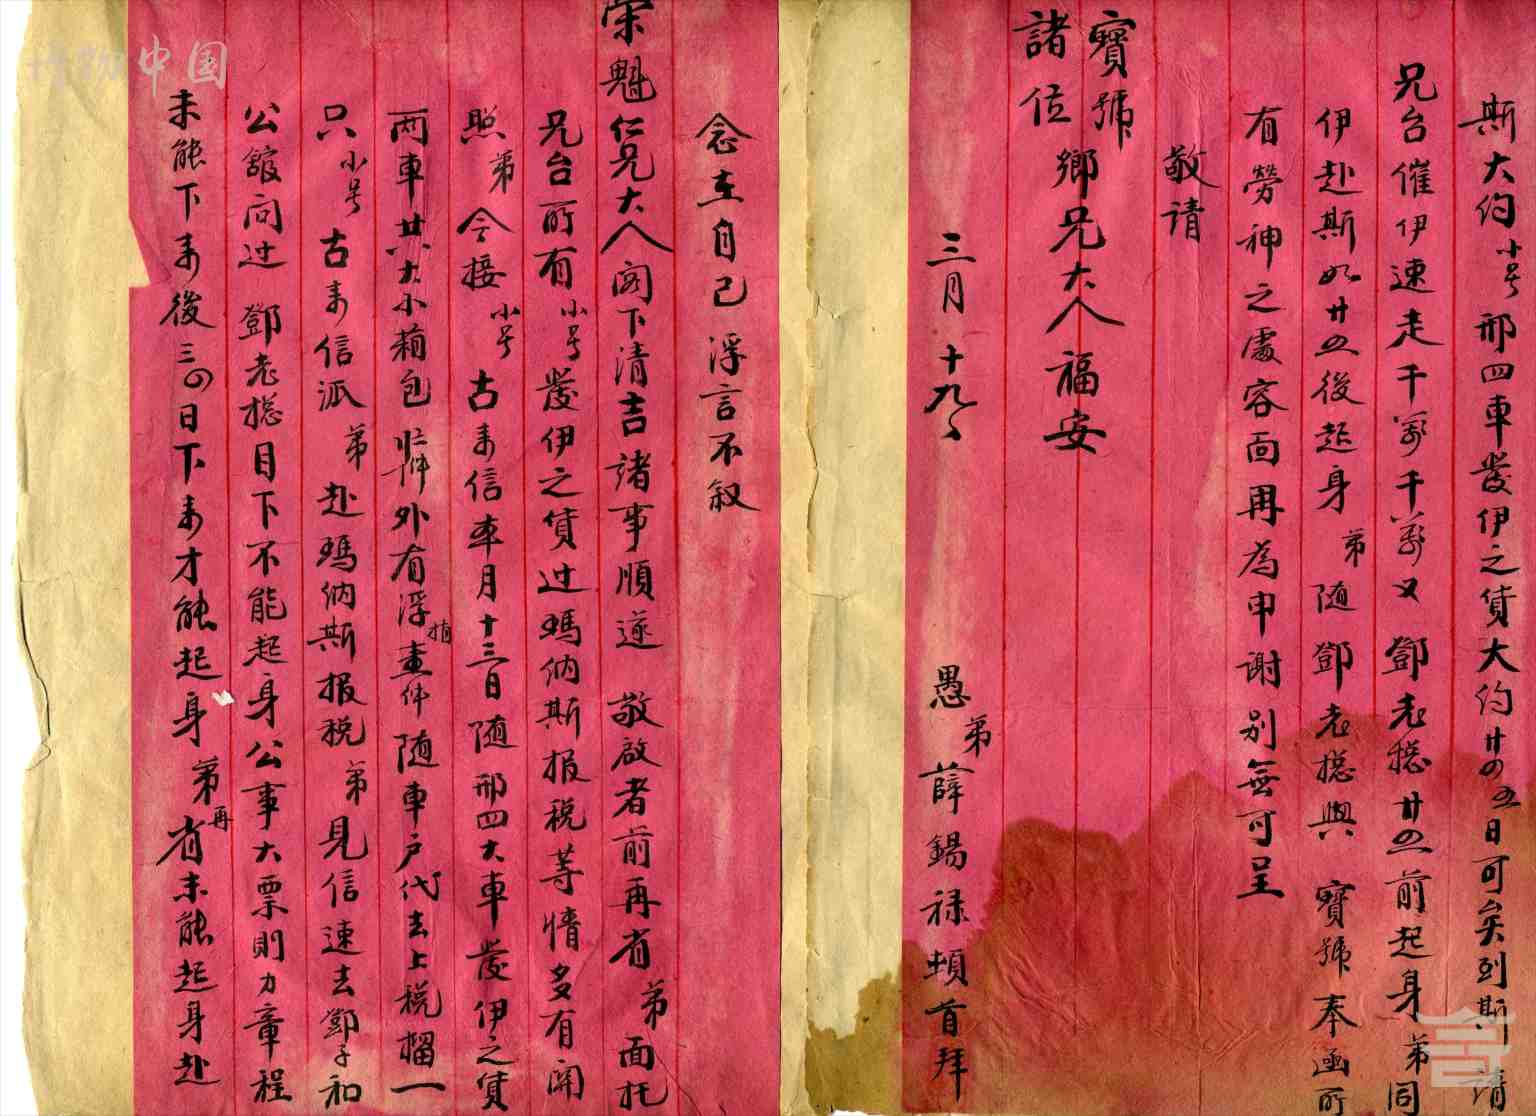 斯大约小号邢四車發伊之貨大约廿四五日可矣到斯请
兄台催伊速走千萬千萬又鄧老總廿五前起身弟同
伊赴斯如廿五後起身弟随鄧老總與寶號奉函所
有勞神之處容面再為申谢别無可呈
敬请
寶號
諸位
鄉兄大人福安
三月十九
愚弟薛錫禄頓首拜
念在自己浮言不叙
荣魁仁兄大人阁下清吉諸事順遂敬啟者前再省弟面托
兄台所有小号發伊之貨过瑪纳斯报税等情多有關
照弟今接小号古来信本月十三日随邢四大車發伊之貨
两車廿六大小箱包件外有浮捎壹件随車户代去上税櫊一
只小号古来信派弟赴瑪纳斯报税弟見信速去鄧子和
公舘问过鄧老總目下不能起身公事大票則力章程
未能下来後三四日下来才能起身弟再省未能起身赴
博物中国